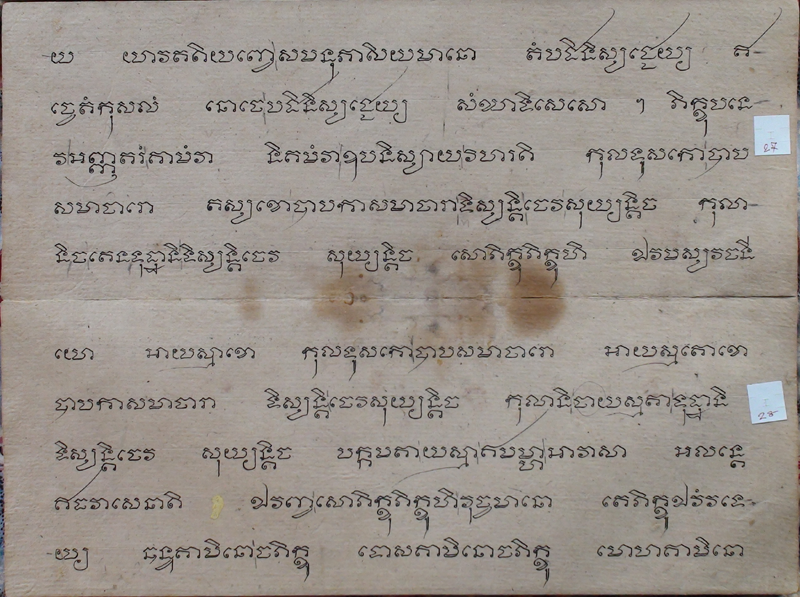 -យ យាវតតិយញ្ចេសមនុភាសិយមានោ តំបដិនិស្សជ្ជេយ្យ ឥ-
ច្ចេតំកុសលំ នោចេបដិនិស្សជ្ជេយ្យ សំឃាទិសេសោ ។ ភិក្ខុបនេ-
វអញ្ញតរំគាមំវា និគមំវាឧបនិស្សាយវិហរតិ កុលទូសកោបាប
សមាចារោ តស្សខោបាបកាសមាចារាទិស្សន្តិចេវសុយ្យន្តិច កុលា-
និចតេនទុដ្ឋានិទិស្សន្តិចេវ សុយ្យន្តិច សោភិក្ខុភិក្ខុហិ ឯវមស្សវចនី
យោ អាយស្មាខោ កុលទូសកោបាបសមាចារោ អាយស្មតោខោ
បាបកាសមាចារា ទិស្សន្តិចេវសុយ្យន្តិច កុលានិចាយស្មតាទុដ្ឋានិ
ទិស្សន្តិចេវ សុយ្យន្តិច បក្កមតាយស្មាឥមម្ហាអាវាសា អលន្តេ
ឥធវាសេនាតិ ឯវញ្ចសោភិក្ខុភិក្ខុហិវុច្ចមានោ តេភិក្ខូឯវំវទេ-
-យ្យ ឆន្ទគាមិនោចភិក្ខូ ទោសគាមិនោចភិក្ខូ មោហគាមិនោ
27
28